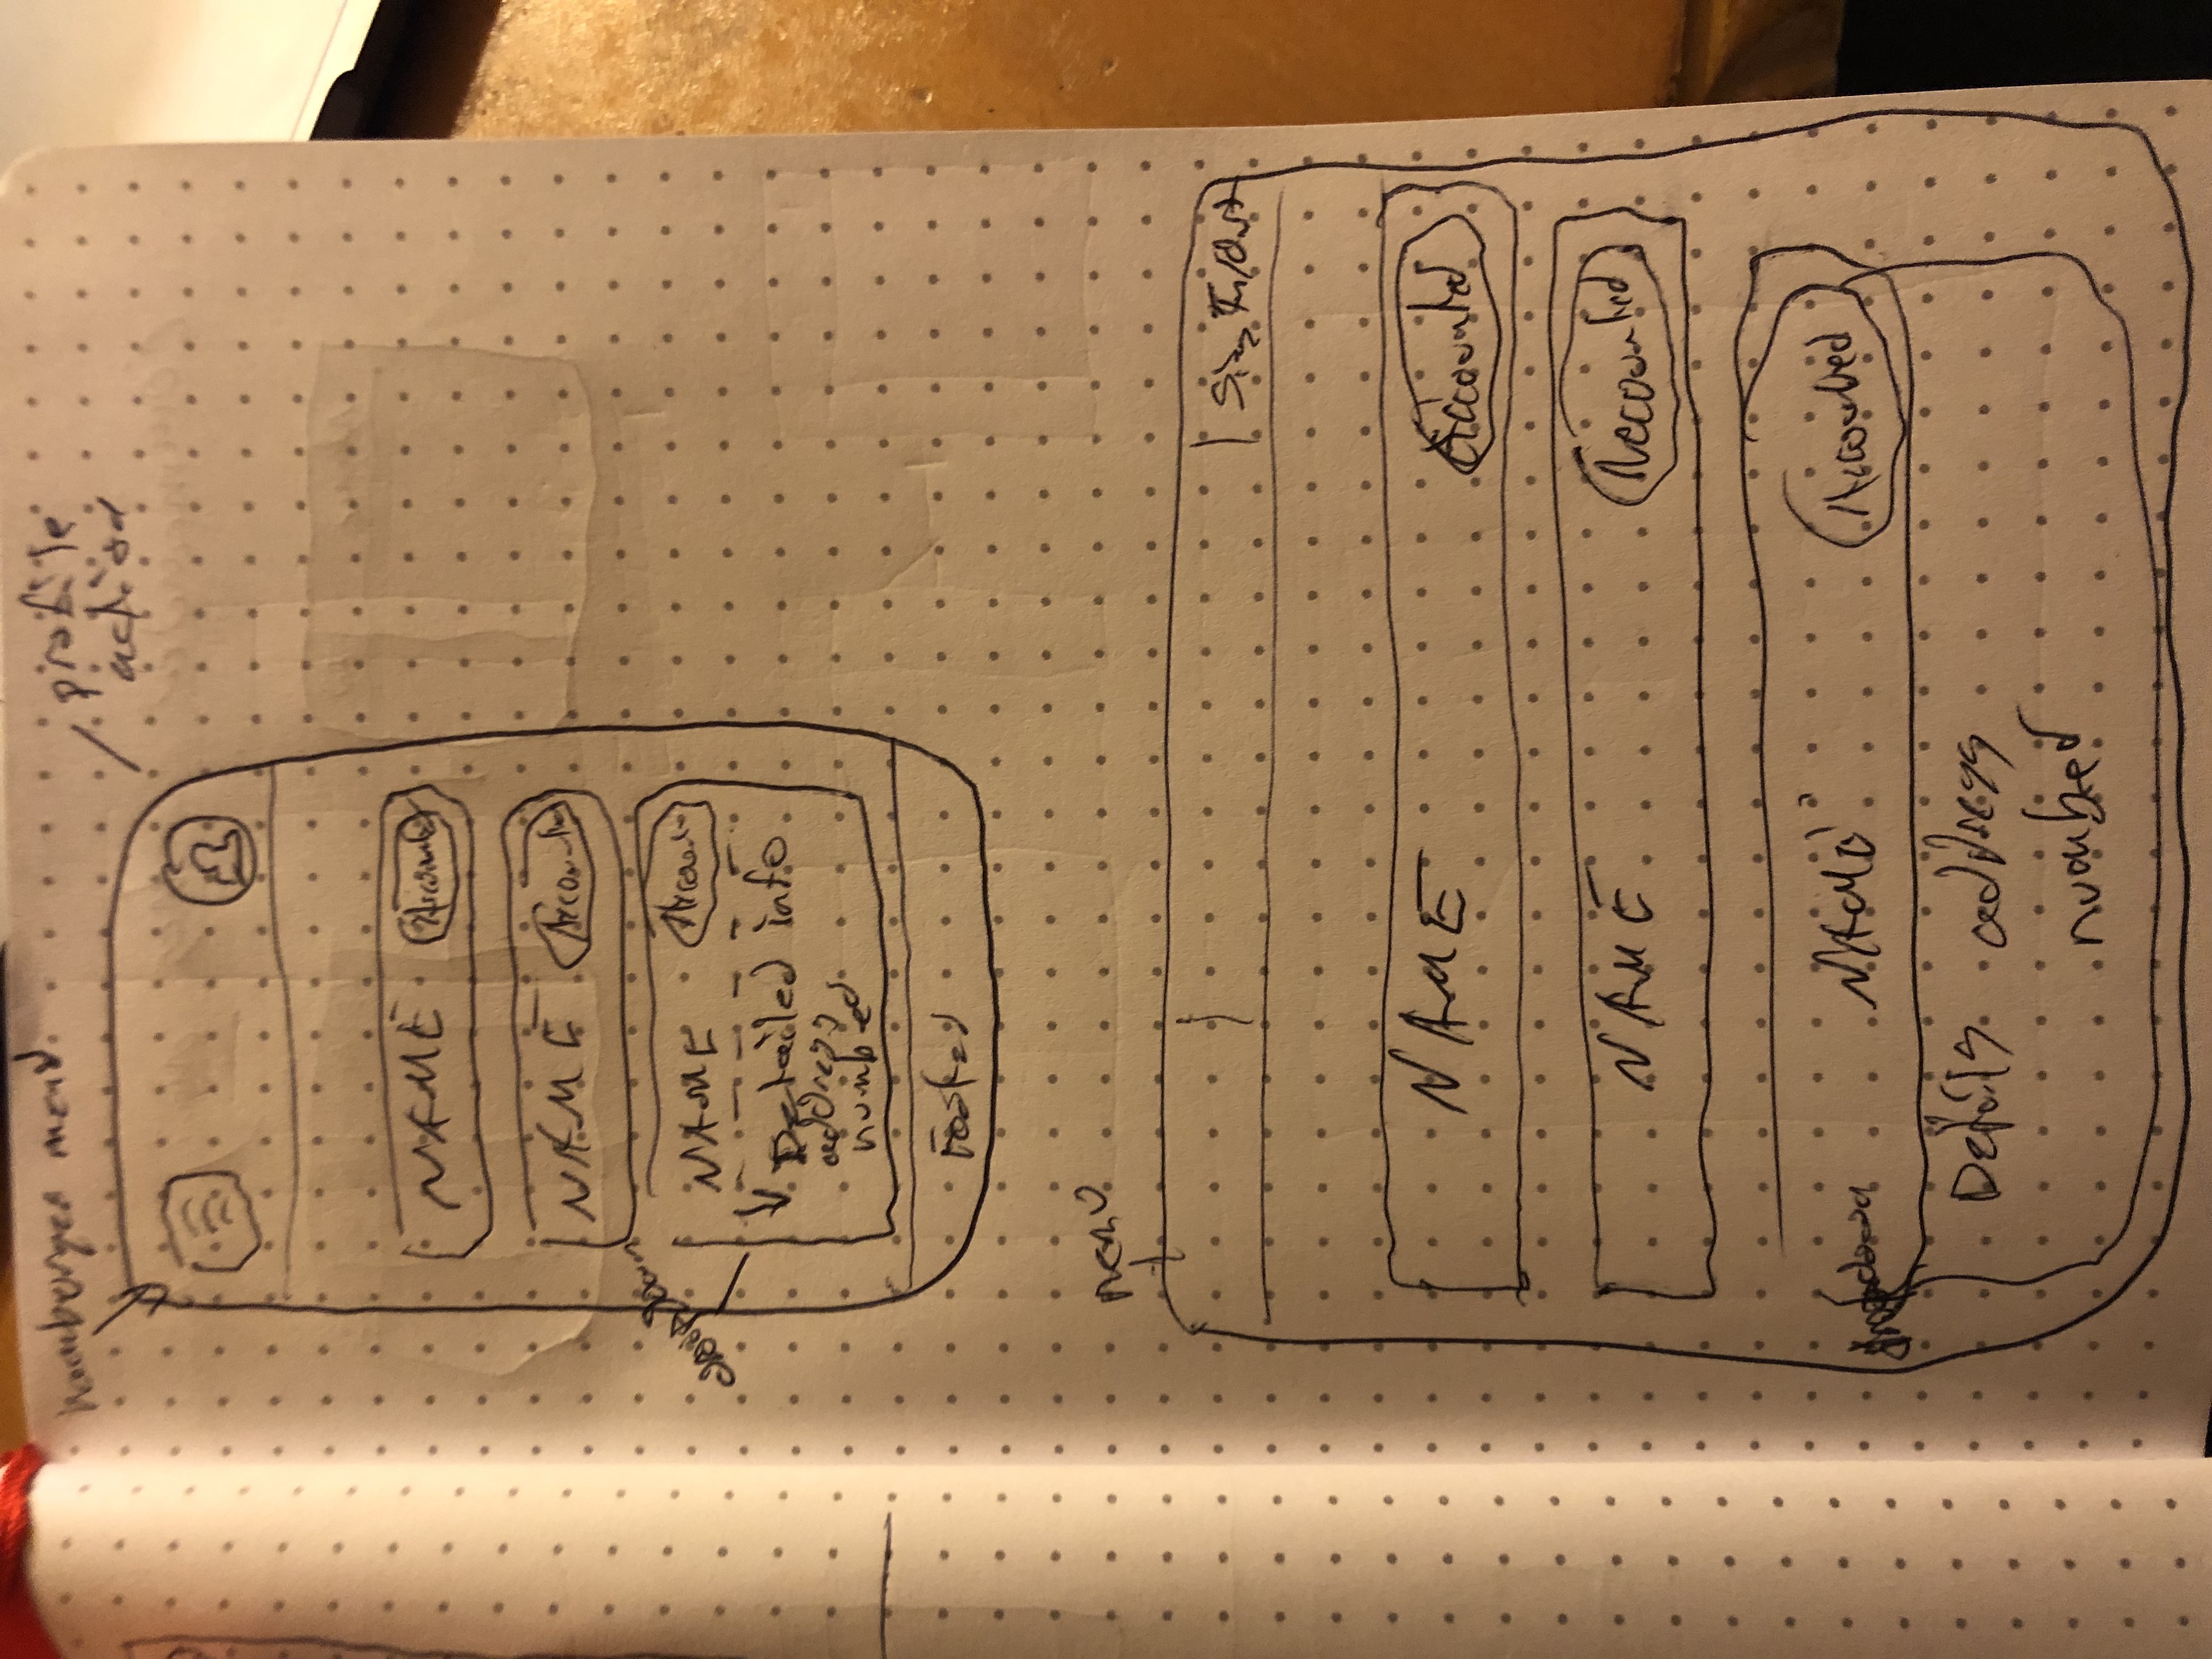 hamburger menu
profile
action
NAME Accounted
NAME Accounted
dropdown
NAME Accounted
Detailed info
address
number
Footer
menu
Sign In/Out
NAME Accounted
NAME Accounted
dropdown NAME Accounted
Details address
number